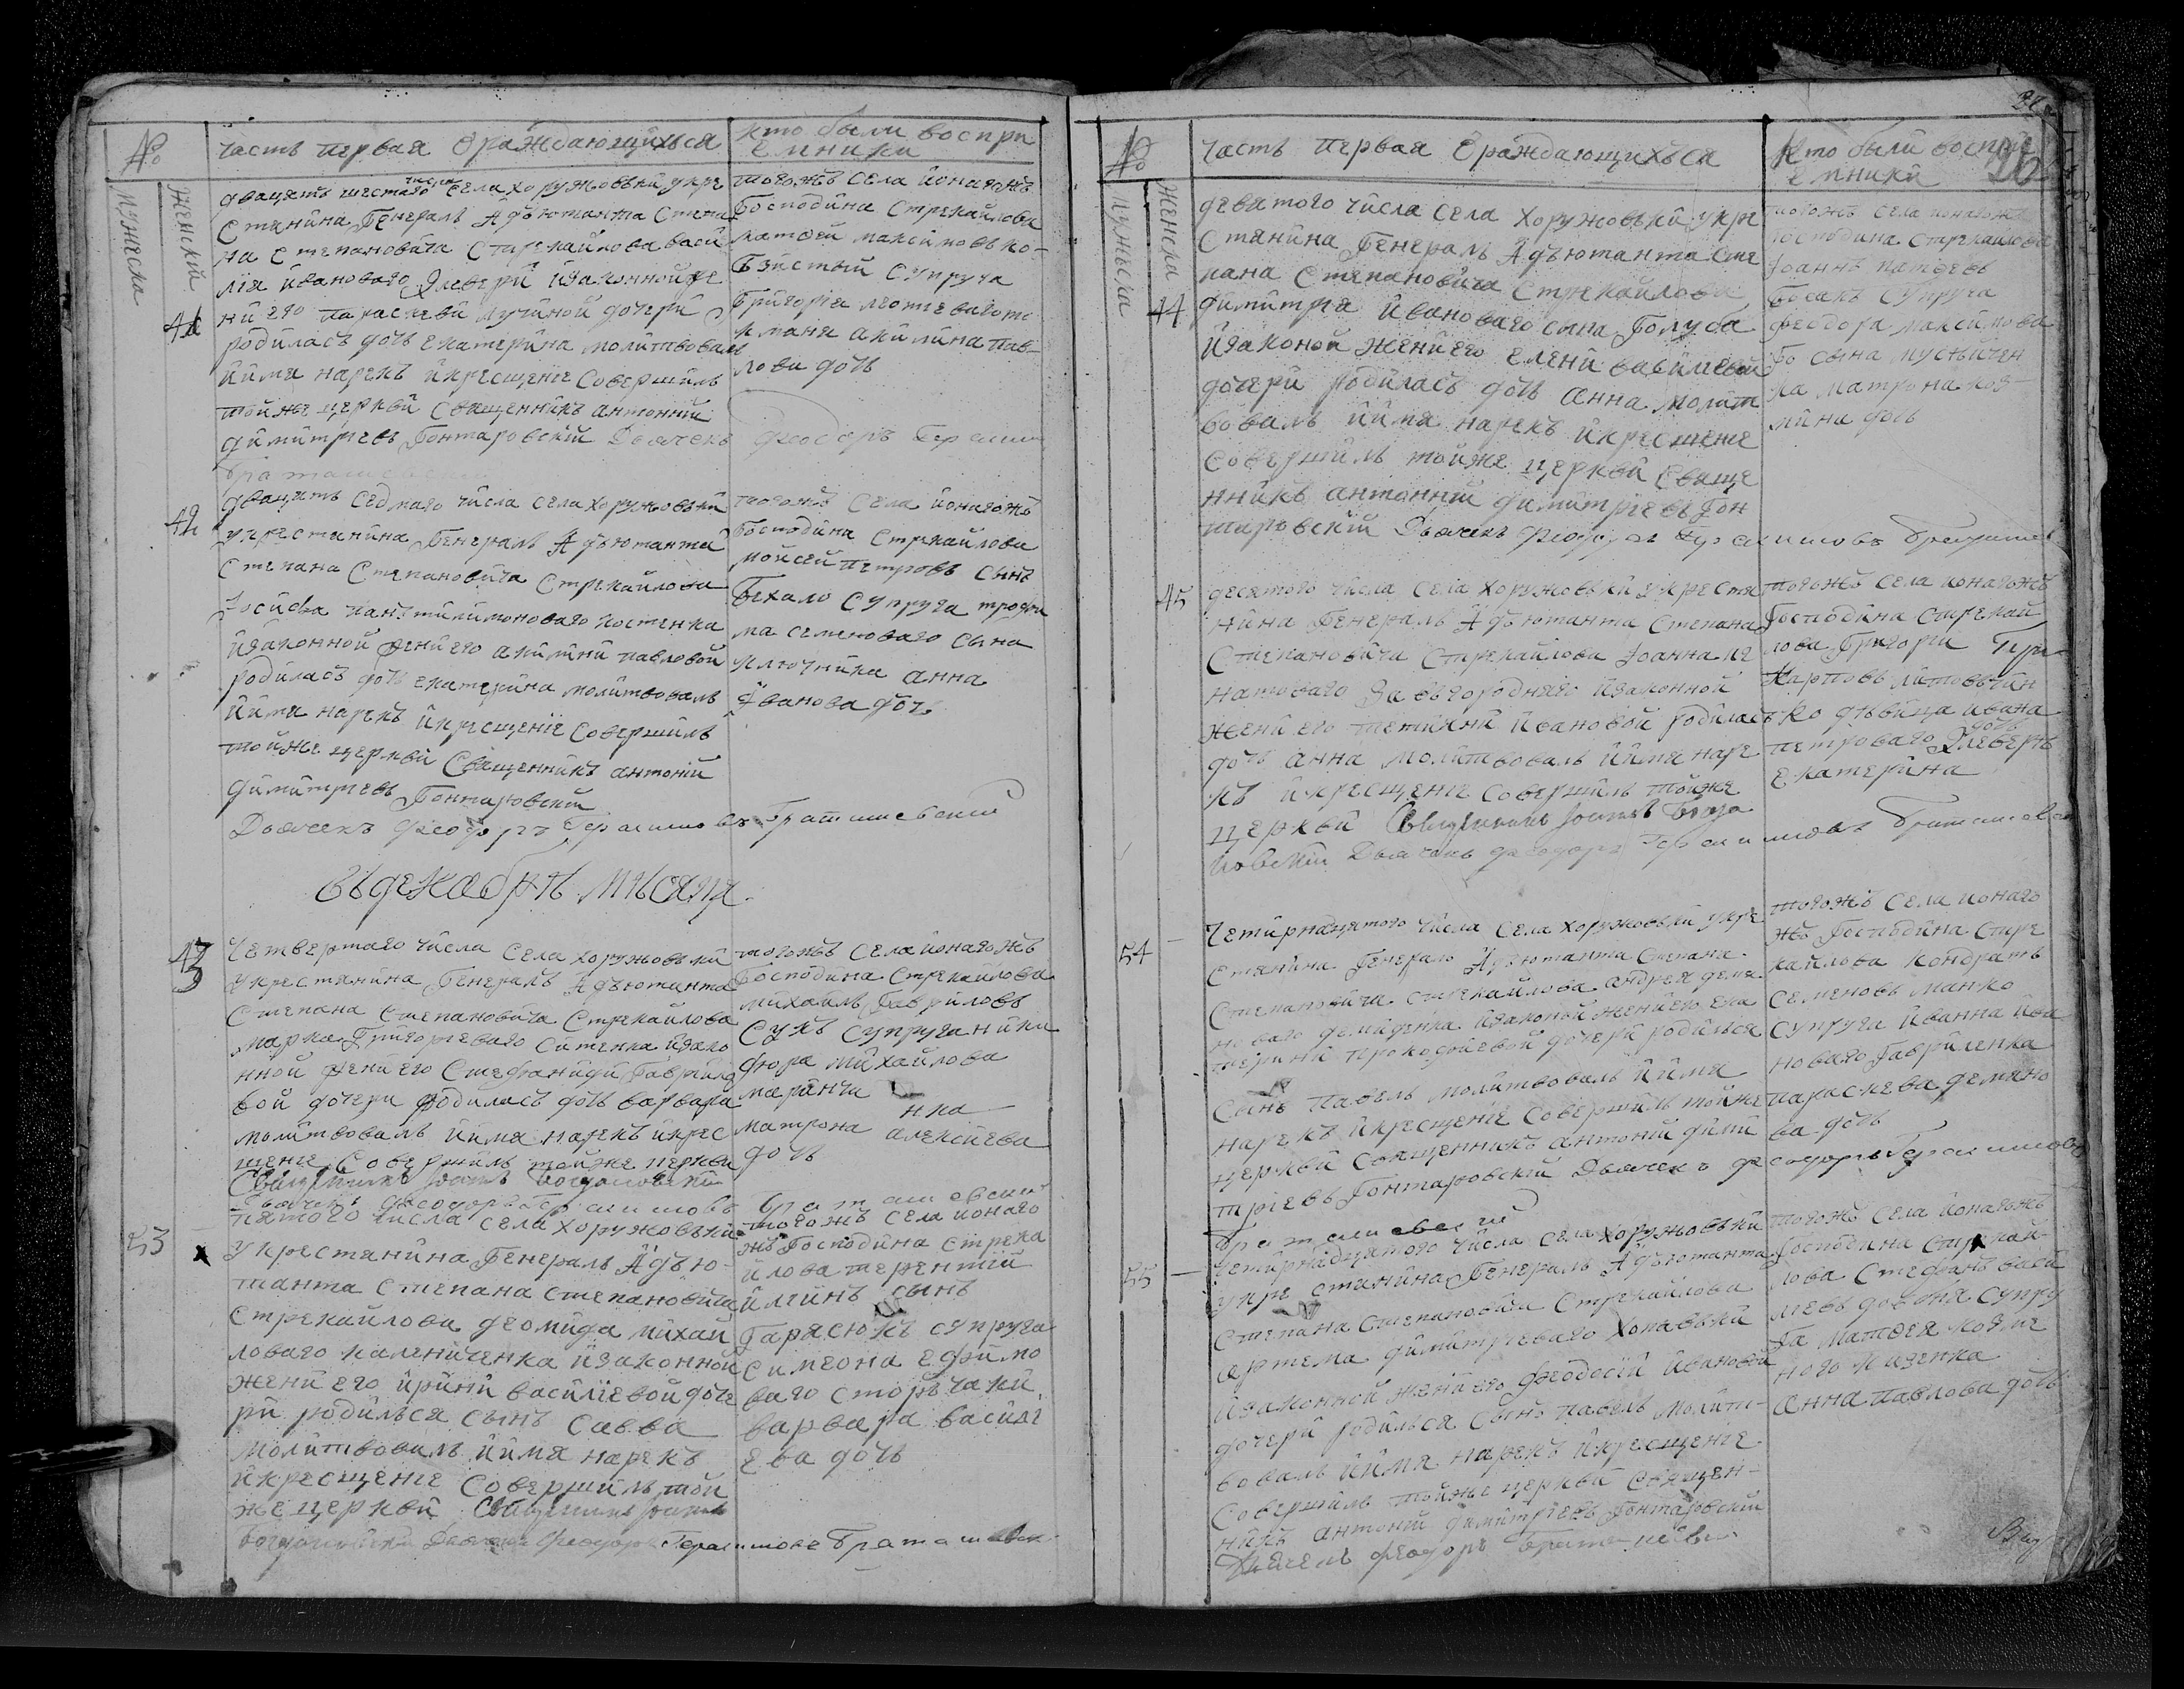 №
Часть первая ѡраждающихъся
Кто были воспри
емники
мужеска
женский
дващять шестаго числа села хоружовьки укре
стянина Генералъ Адъютанта Степа
на Степановича Стрекайлова васи
лія ивановаго Улевери изаконной же
ни его параскеви лучиной дочери
родиласъ дочь екатерина молитвовалъ
ииѵмя нарекъ икрещение совершилъ
тойже церкви священникъ антоний
димитриевъ Гонтаровский Дьячекъ
41
тогожъ села йонагожъ
Господина Стрекайлова
матфей максимовъ ко-
супруга
Григорія
акилина пав-
лова дочь
Феодоръ
42
дващять седмаго числа села хоружовьки
укрестянина Генералъ Адъютанта
Степана Степановича Стрекайлова
Іосифа пантилимоноваго костенка
изаконной жени его акилини павловой
родиласъ дочь екатерина молитвовалъ
иимя нарекъ икрещение совершилъ
тойже церкви священникъ антоний
димитриевъ Гонтаровский
Дьячекъ Феодоръ Герасимовъ Браташевский
тогожъ села йонагожъ
Господина Стрекайлова
мойсей петровъ сынъ
Бехало супруга трофи
ма семеноваго сына
ключника анна
Иванова дочь
Въ декабрѣ мѣсяцѣ
43
Четвертаго числа села хоружовьки
укрестянина Генералъ Адъютанта
Степана Степановича Стрекайлова
марка Григориеваго ситенка изако
нной жени его Стефаниди Гаврило
вой дочери родиласъ дочь варвара
молитвовалъ иимя нарекъ икрес
щение совершилъ тойже церкви
Священникъ Іоаннъ
Дьячекъ Феодоръ Герасимовъ Браташевский
тогожъ села йонагожъ
Господина Стрекайлова
михаилъ Гавриловъ
Сукъ супруга ники
фора михайлова
маринчи
нка
матрона алексйева
дочь
53
пятого числа села хоружовьки
укрестянина Генералъ Адъю-
танта Степана Степановича
Стрекайлова деомида михай
ловаго калениченка изаконной
жени его ирини василиевой доче
ри родилъся сынъ Савва
молитвовалъ иимя нарекъ
икресщение совершилъ той
же церкви Священникъ Іоаннъ
Дьячекъ Феодоръ Герасимовъ Браташевск
тогожъ села йонаго
жъ Господина стрека
йлова терентий
илиинъ сынъ
Гарясюкъ супруга
симеона ефимо
ваго сторъчаки
варвара васили
ева дочь
№
Часть первая ѡраждающихъся
Кто были воспри
емники
26
мужеска
женска
44
девятого числа села хоружовьки укре
стянина Генералъ Адъютанта Сте
пана Степановича Стрекайлова
димитрия ивановаго сына Голуба
изаконой жени его елени василевой
дочери родиласъ дочь анна молит
вовалъ иимя нарекъ икрещение
совершилъ тойже церкви Свяще
нникъ антоний димитриевъ Гон
таровский Дьячекъ Феодоръ Герасимовъ
тогожъ села йонагож
Господина стрекайлова
Іоаннъ матфевъ
Босакъ супруга
феодора максимова
го сына мусыйчен
ка матрона коз-
мина дочь
45
десятого числа села хоружовьки укрестя
нина Генералъ Адъютанта Степана
Степановича Стрекайлова Іоанна иг
натоваго Завъгороднаго изаконной
жени его тетияни ивановой родиласъ
дочь анна молитвовалъ иимя наре
къ икресщение совершилъ тойже
церкви Священникъ Іоаннъ
Дьячекъ Феодоръ Герасимовъ
тогожъ села йонагожъ
Господина стрекай
лова Григори
Карповъ литовъчин
ко дѣвица ивана
петроваго Улеверѣ дочь
екатерина
54
Четирнацятого числа села хоружовьки укре
стянина Генералъ Адъютанта Степана
Степановича Стрекайлова андрея демя
новаго демиденка изаконой жени его ека
терини прокофиевой дочери родилъся
сынъ павелъ молитвовалъ иимя
нарекъ икресщение совершилъ тойже
церкви священникъ антоний дими
триевъ Гонтаровский Дьячекъ Феодоръ Герасимовъ
Браташевский
тогожъ села йонаго
жъ Господина Стре
кайлова кондратъ
семеновъ манко
супруга иванна ива
новаго Гавриленка
параскева демяно
ва дочь
55
Четирнадцятого числа села хоружовьки
укрестянина Генералъ Адъютанта
Степана Степановича Стрекайлова
артема димитриеваго хопавьки
изаконной жени его феодосии ивановой
дочери родилъся сынъ павелъ молит-
вовалъ иимя нарекъ икресщение
совершилъ тойже церкви священ-
никъ антоний димитриевъ Гонтаровский
Дьячекъ Феодоръ
тогожъ села йонагожъ
Господина Стрекай-
лова Стефанъ васи
левъ супру
га матфея козме
ного
анна павлова дочь